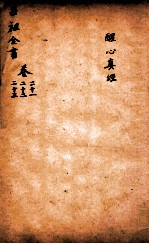 醒心真經
呂祖全書
卷
二十一
二十二
二十三